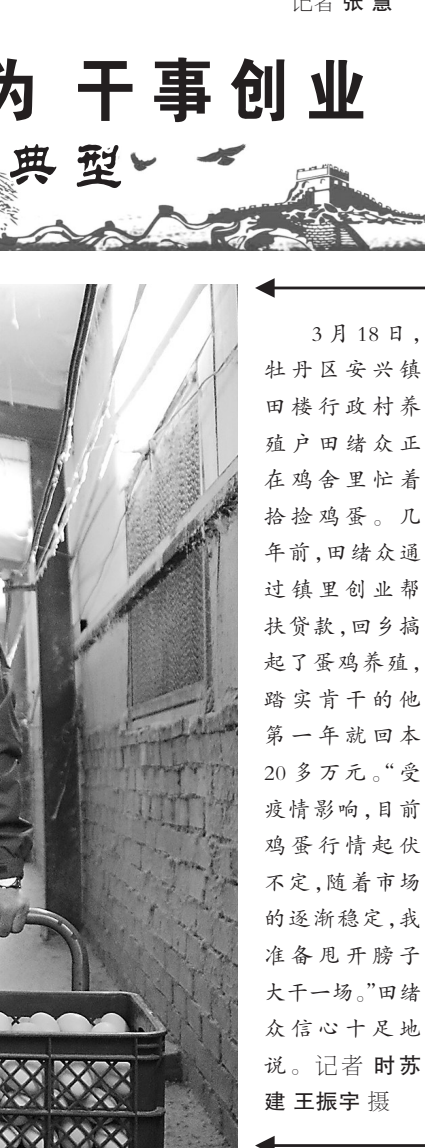 记者 张 慧
为 干事创业
典型
3月18日,
牡丹区安兴镇
田楼行政村养
殖户田绪众正
在鸡舍里忙着
拾捡鸡蛋。几
年前,田绪众通
过镇里创业帮
扶贷款,回乡搞
起了蛋鸡养殖,
踏实肯干的他
第一年就回本
20多万元。“受
疫情影响,目前
鸡蛋行情起伏
不定,随着市场
的逐渐稳定,我
准备甩开膀子
大干一场。”田绪
众信心十足地
说。记者 时苏
建 王振宇 摄